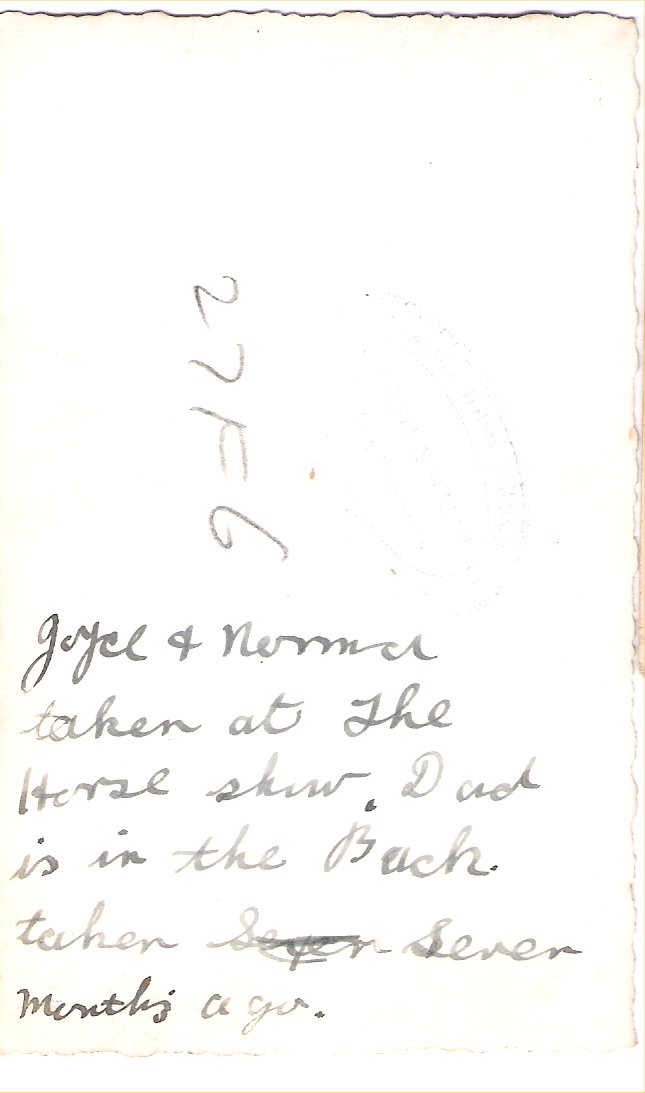 Joyce & Norma
taken at The
Horse show. Dad
is in the Back.
taken Seven Seven
Months ago.